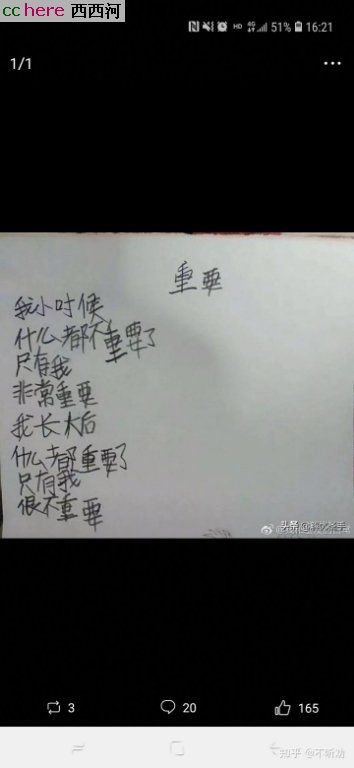 cc here 西西河
HD 4G 51% 16:21
1/1
重要
我小时候
什么都不重要了
只有我
非常重要
我长大后
什么都重要了
只有我
很不重要
3
20
165
知乎 @不听劝